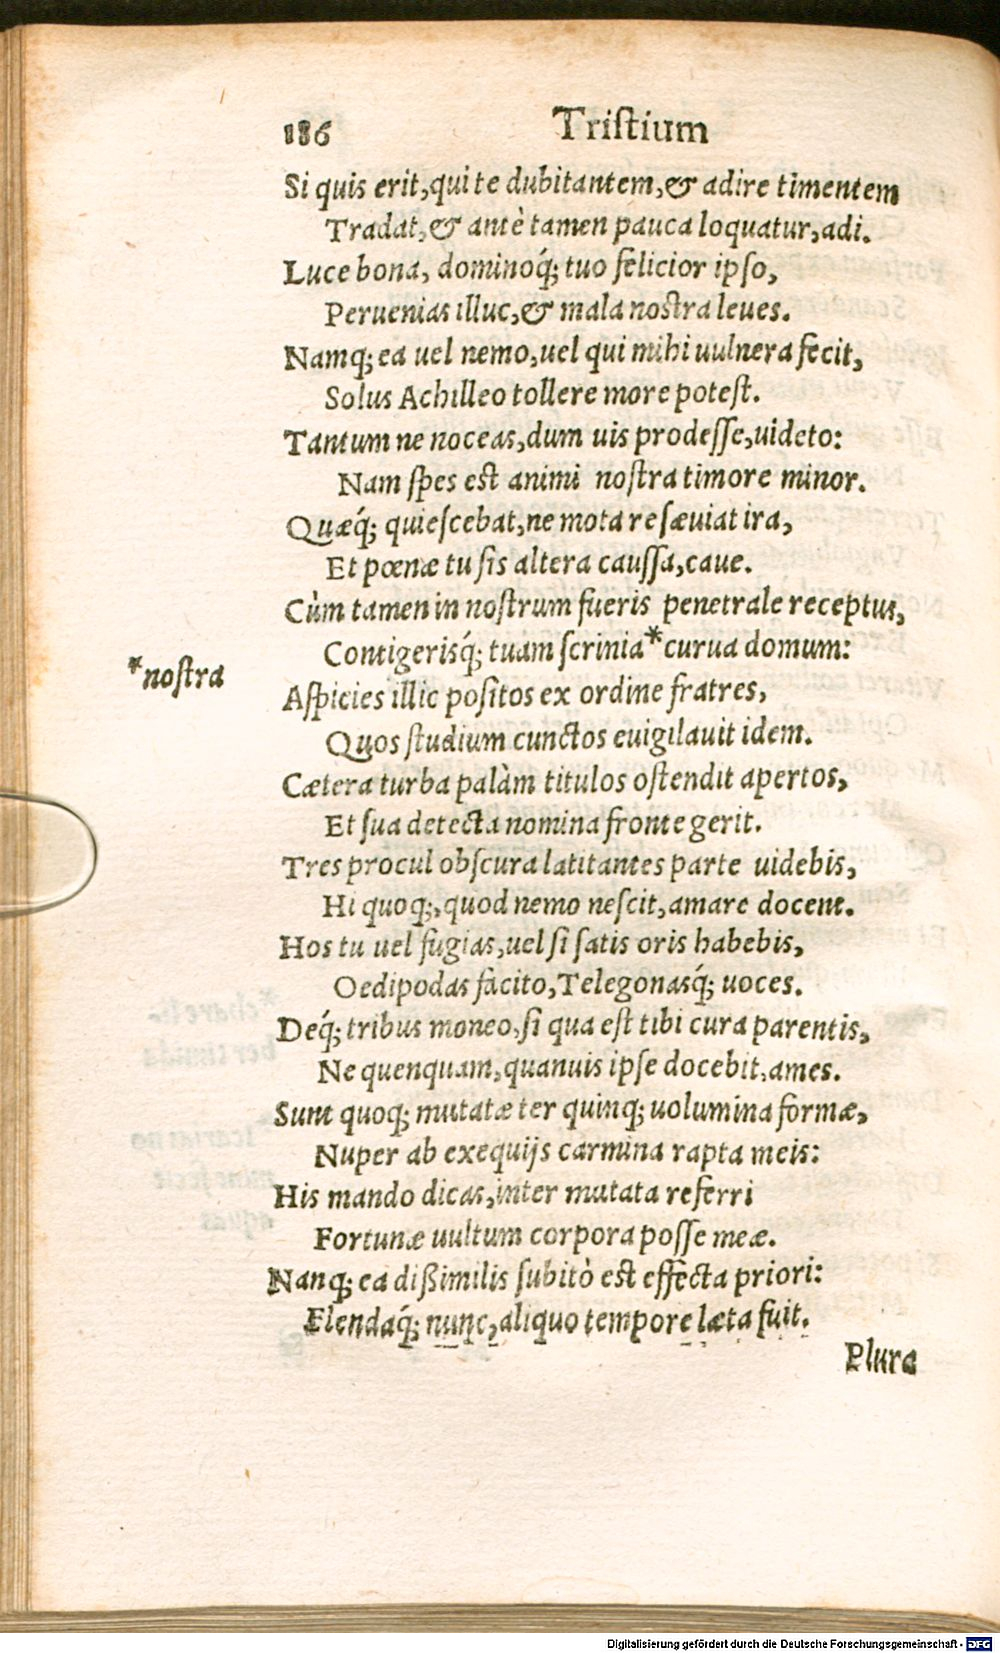 186 Tristium
Si quis erit, qui te dubitantem, & adire timentem
Tradat, & antè tamen pauca loquatur, adi.
Luce bona, dominoq́; tuo felicior ipso,
Peruenias illuc, & mala nostra leues.
Namq; ea uel nemo, uel qui mihi uulnera fecit,
Solus Achilleo tollere more potest.
Tantum ne noceas, dum uis prodesse, uideto:
Nam spes est animi nostra timore minor.
Quæq́; quiescebat, ne mota resæuiat ira,
Et pœnæ tu sis altera caussa, caue.
Cùm tamen in nostrum fueris penetrale receptus,
Contigerisq́; tuam scrinia*curua domum:
*nostra
Aspicies illic positos ex ordine fratres,
Quos studium cunctos euigilauit idem.
Cætera turba palàm titulos ostendit apertos,
Et sua detecta nomina fronte gerit.
Tres procul obscura latitantes parte uidebis,
Hi quoq;, quod nemo nescit, amare docent.
Hos tu uel fugias, uel si satis oris habebis,
Oedipodas facito, Telegonasq́; uoces.
Deq́; tribus moneo, si qua est tibi cura parentis,
Ne quenquam, quanuis ipse docebit, ames.
Sunt quoq; mutatæ ter quinq; uolumina formæ,
Nuper ab exequijs carmina rapta meis:
His mando dicas, inter mutata referri
Fortunæ uultum corpora posse meæ.
Nanq; ea dißimilis subitò est effecta priori:
Flendaq́; nunc, aliquo tempore læta fuit.
Plura
Digitalisierung gefördert durch die Deutsche Forschungsgemeinschaft - DFG